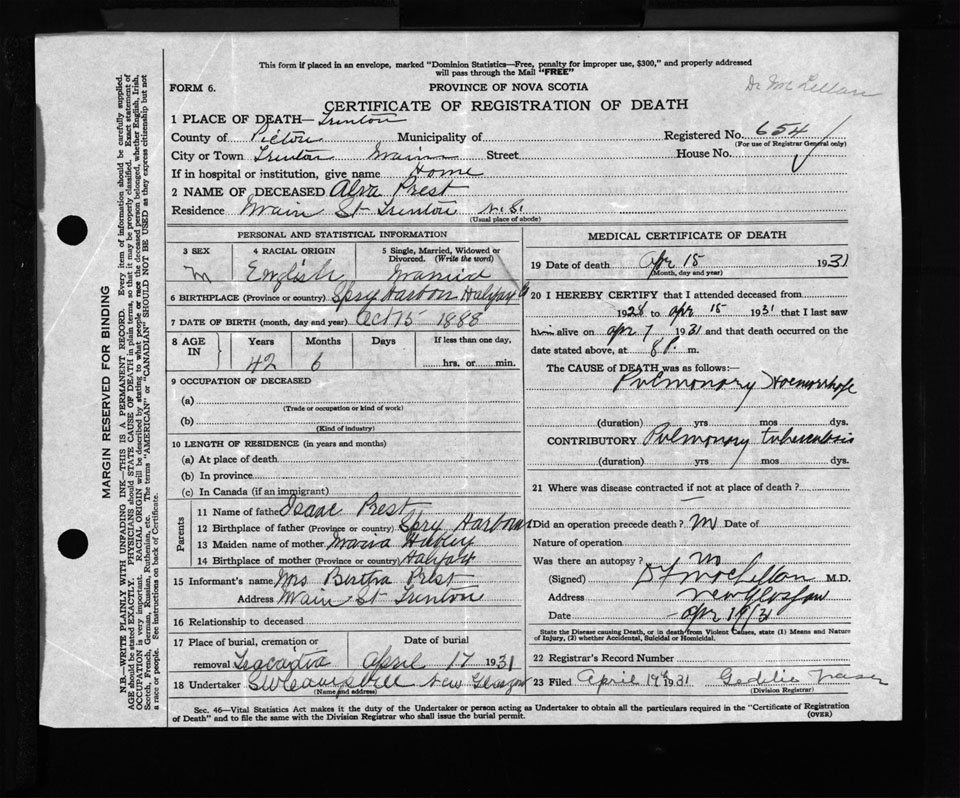 This form if placed in an envelope, marked "Dominion Statistics—Free, penalty for improper use, $300," and properly addressed
will pass through the Mail "FREE"
FORM 6.
PROVINCE OF NOVA SCOTIA
Dr McLellan
CERTIFICATE OF REGISTRATION OF DEATH
1 PLACE OF DEATH—Trenton
County of Pictou Municipality of Registered No. 654
(For use of Registrar General only)
City or Town Trenton Main Street House No.
If in hospital or institution, give name Home
2 NAME OF DECEASED Alva Prest
Residence Main St Trenton N.S.
(Usual place of abode)
PERSONAL AND STATISTICAL INFORMATION
3 SEX 4 RACIAL ORIGIN 5 Single, Married, Widowed or Divorced. (Write the word)
M English Married
6 BIRTHPLACE (Province or country) Spry Harbour Halifax Co
7 DATE OF BIRTH (month, day and year) Oct 15 1888
8 AGE IN Years Months Days If less than one day,
42 6 hrs. or min.
9 OCCUPATION OF DECEASED
(a)
(Trade or occupation or kind of work)
(b)
(Kind of industry)
10 LENGTH OF RESIDENCE (in years and months)
(a) At place of death
(b) In province
(c) In Canada (if an immigrant)
Parents
11 Name of father Isaac Prest
12 Birthplace of father (Province or country) Spry Harbour
13 Maiden name of mother Maria Hubley
14 Birthplace of mother (Province or country) Halifax
15 Informant's name Mrs Bertha Prest
Address Main St Trenton
16 Relationship to deceased
17 Place of burial, cremation or Date of burial
removal April 17 1931
18 Undertaker New Glasgow
(Name and address)
MEDICAL CERTIFICATE OF DEATH
19 Date of death Apr 15 1931
(Month, day and year)
20 I HEREBY CERTIFY that I attended deceased from
1928 to apr 15 1931 that I last saw
him alive on apr 7 1931 and that death occurred on the
date stated above, at 8 P. m.
The CAUSE of DEATH was as follows:—
Pulmonary Haemorrhage
(duration) yrs mos dys.
CONTRIBUTORY Pulmonary tuberculosis
(duration) yrs mos dys.
21 Where was disease contracted if not at place of death?
—
Did an operation precede death? no Date of
Nature of operation
Was there an autopsy? no
(Signed) McLellan M.D.
Address New Glasgow
Date apr 19/31
State the Disease causing Death, or in death from Violent Causes, state (1) Means and Nature
of Injury, (2) whether Accidental, Suicidal or Homicidal.
22 Registrar's Record Number
23 Filed April 19th 1931 Geddie Fraser
(Division Registrar)
Sec. 46—Vital Statistics Act makes it the duty of the Undertaker or person acting as Undertaker to obtain all the particulars required in the "Certificate of Registration
of Death" and to file the same with the Division Registrar who shall issue the burial permit.
(OVER)
MARGIN RESERVED FOR BINDING
N.B.—WRITE PLAINLY WITH UNFADING INK—THIS IS A PERMANENT RECORD. Every item of information should be carefully supplied.
AGE should be stated EXACTLY. PHYSICIANS should STATE CAUSE OF DEATH in plain terms, so that it may be properly classified. Exact statement of
OCCUPATION is very important. RACIAL ORIGIN will be described by stating to what people or race the deceased person belonged, whether English, Irish,
Scotch, French, German, Russian, Ruthenian, etc. The terms "AMERICAN" or "CANADIAN" SHOULD NOT BE USED as they express citizenship but not
a race or people. See instructions on back of Certificate.